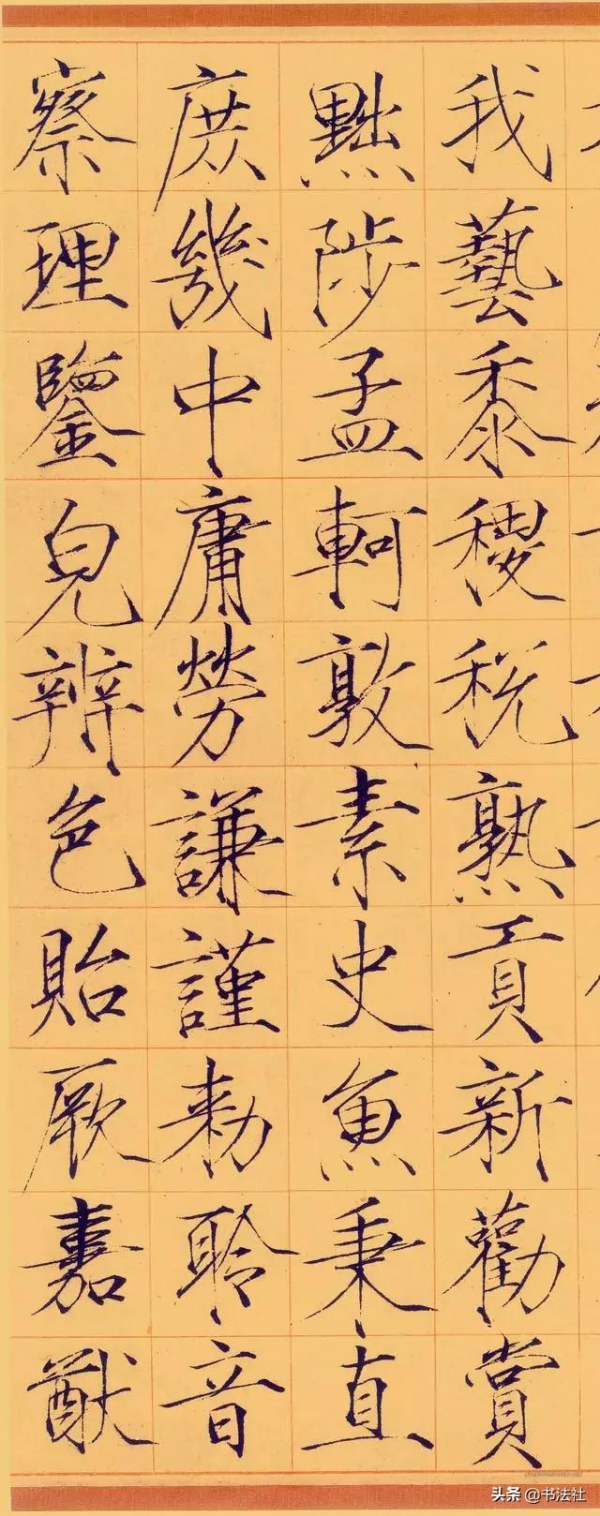 我藝黍稷稅熟貢新勸賞
黜陟孟軻敦素史魚秉直
庶幾中庸勞謙謹勑聆音
察理鑒皃辨色貽厥嘉猷
头条 @书法社